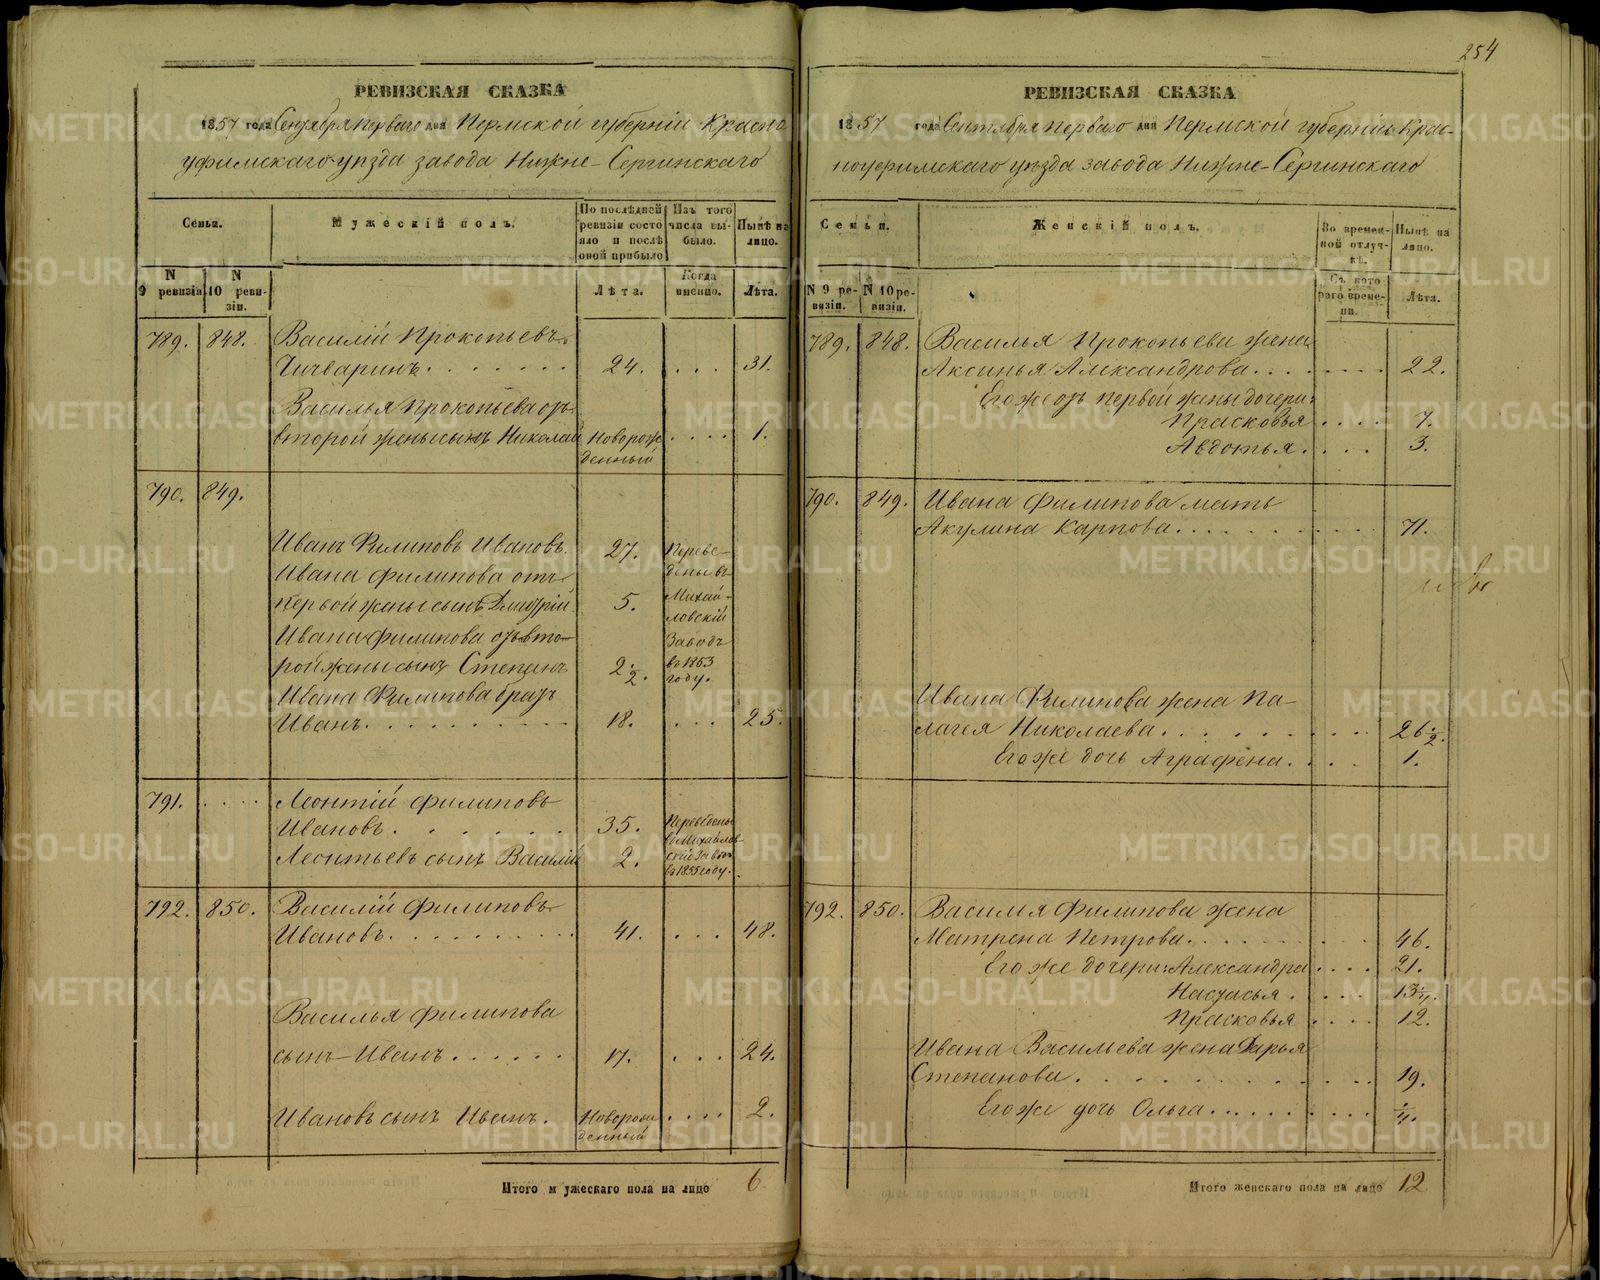 РЕВИЗСКАЯ СКАЗКА
1857 года Сентября перваго дня Пермской губерніи Красно
уфимскаго уѣзда завода Нижне-Сергинскаго
Семьи.
Мужескій полъ.
По послѣдней ревизіи состояло и послѣ оной прибыло
Изъ того числа выбыло.
Нынѣ на лицо.
N 9 ревизіи.
N 10 ревизіи.
Лѣта.
Когда именно.
Лѣта.
789. 848. Василій Прокопьевъ
Чичваринъ. 24. 31.
Василья Прокопьева отъ
второй жены сынъ Николай Новорож 1.
денный
790. 849.
Иванъ Филиповъ Ивановъ. 27. Переве-
Ивана Филипова отъ дены въ
первой жены сынъ Дмитрій 5. Михай-
ловскій
Ивана Филипова отъ вто- Заводъ
рой жены сынъ Степанъ 2½. въ 1853
году.
Ивана Филипова братъ
Иванъ. 18. 25.
791. Леонтій Филиповъ
Ивановъ. 35. Переведены
въ Михайлов
Леонтьевъ сынъ Василій 2. скій Заводъ
въ 1855 году.
792. 850. Василій Филиповъ
Ивановъ. 41. 48.
Василья Филипова
сынъ Иванъ. 17. 24.
Ивановъ сынъ Иванъ. Новорож 2.
денный
Итого мужескаго пола на лицо 6
254
РЕВИЗСКАЯ СКАЗКА
1857 года Сентября перваго дня Пермской губерніи Крас-
ноуфимскаго уѣзда завода Нижне-Сергинскаго
Семьи.
Женскій полъ.
Во временной отлучкѣ.
Нынѣ на лицо.
N 9 ревизіи.
N 10 ревизіи.
Съ котораго времени.
Лѣта.
789. 848. Василья Прокопьева жена
Аксинья Александрова. 22.
Его же отъ первой жены дочери:
Прасковья 7.
Авдотья. 3.
790. 849. Ивана Филипова мать
Акулина Карпова. 71.
Ивана Филипова жена Па-
лагея Николаева. 26½.
Его же дочь Аграфена. 1.
792. 850. Василья Филипова жена
Матрена Петрова. 46.
Его же дочери: Александра 21.
Настасья. 13¼.
Прасковья 12.
Ивана Васильева жена Дарья
Степанова. 19.
Его же дочь Ольга. ¼.
Итого женскаго пола на лицо 12
METRIKI.GASO-URAL.RU